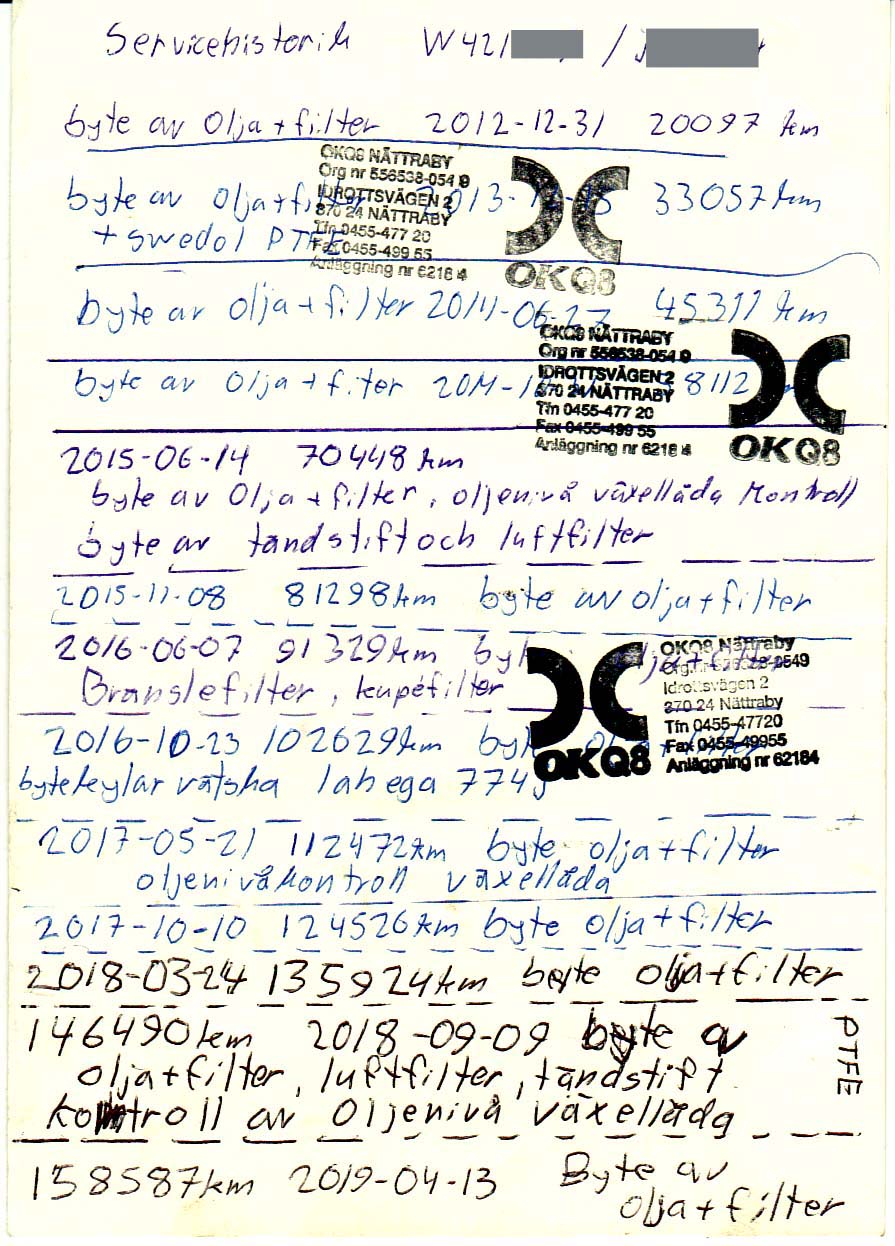 Servicehistorik W421 /
byte av olja + filter 2012-12-31 20097 km
OKQ8 NÄTTRABY
Org nr 556538-054 9
IDROTTSVÄGEN 2
370 24 NÄTTRABY
Tfn 0455-477 20
Fax 0455-499 55
Anläggning nr 6218 4
OKQ8
byte av olja + filter 33057 km
+ swedol PTFE
byte av olja + filter 2014-06-27 45311 km
OKQ8 NÄTTRABY
Org nr 556538-054 9
IDROTTSVÄGEN 2
370 24 NÄTTRABY
Tfn 0455-477 20
Fax 0455-499 55
Anläggning nr 6218 4
OKQ8
byte av olja + filter
2015-06-14 70448 km
byte av olja + filter, oljenivå växellåda kontroll
byte av tändstift och luftfilter
2015-11-08 81298 km byte av olja + filter
2016-06-07 91329 km olja + filter
Bränslefilter, kupéfilter
OKQ8 Nättraby
Idrottsvägen 2
370 24 Nättraby
Tfn 0455-47720
Fax 0455-49955
Anläggning nr 62184
OKQ8
2016-10-23 102629 km
byte kylar vätska lahega 774
2017-05-21 112472 km byte olja + filter
oljenivåkontroll växellåda
2017-10-10 124526 km byte olja + filter
2018-03-24 135924 km byte olja + filter
146490 km 2018-09-09 byte av
olja + filter, luftfilter, tändstift
kontroll av oljenivå växellåda
PTFE
158587 km 2019-04-13 Byte av
olja + filter